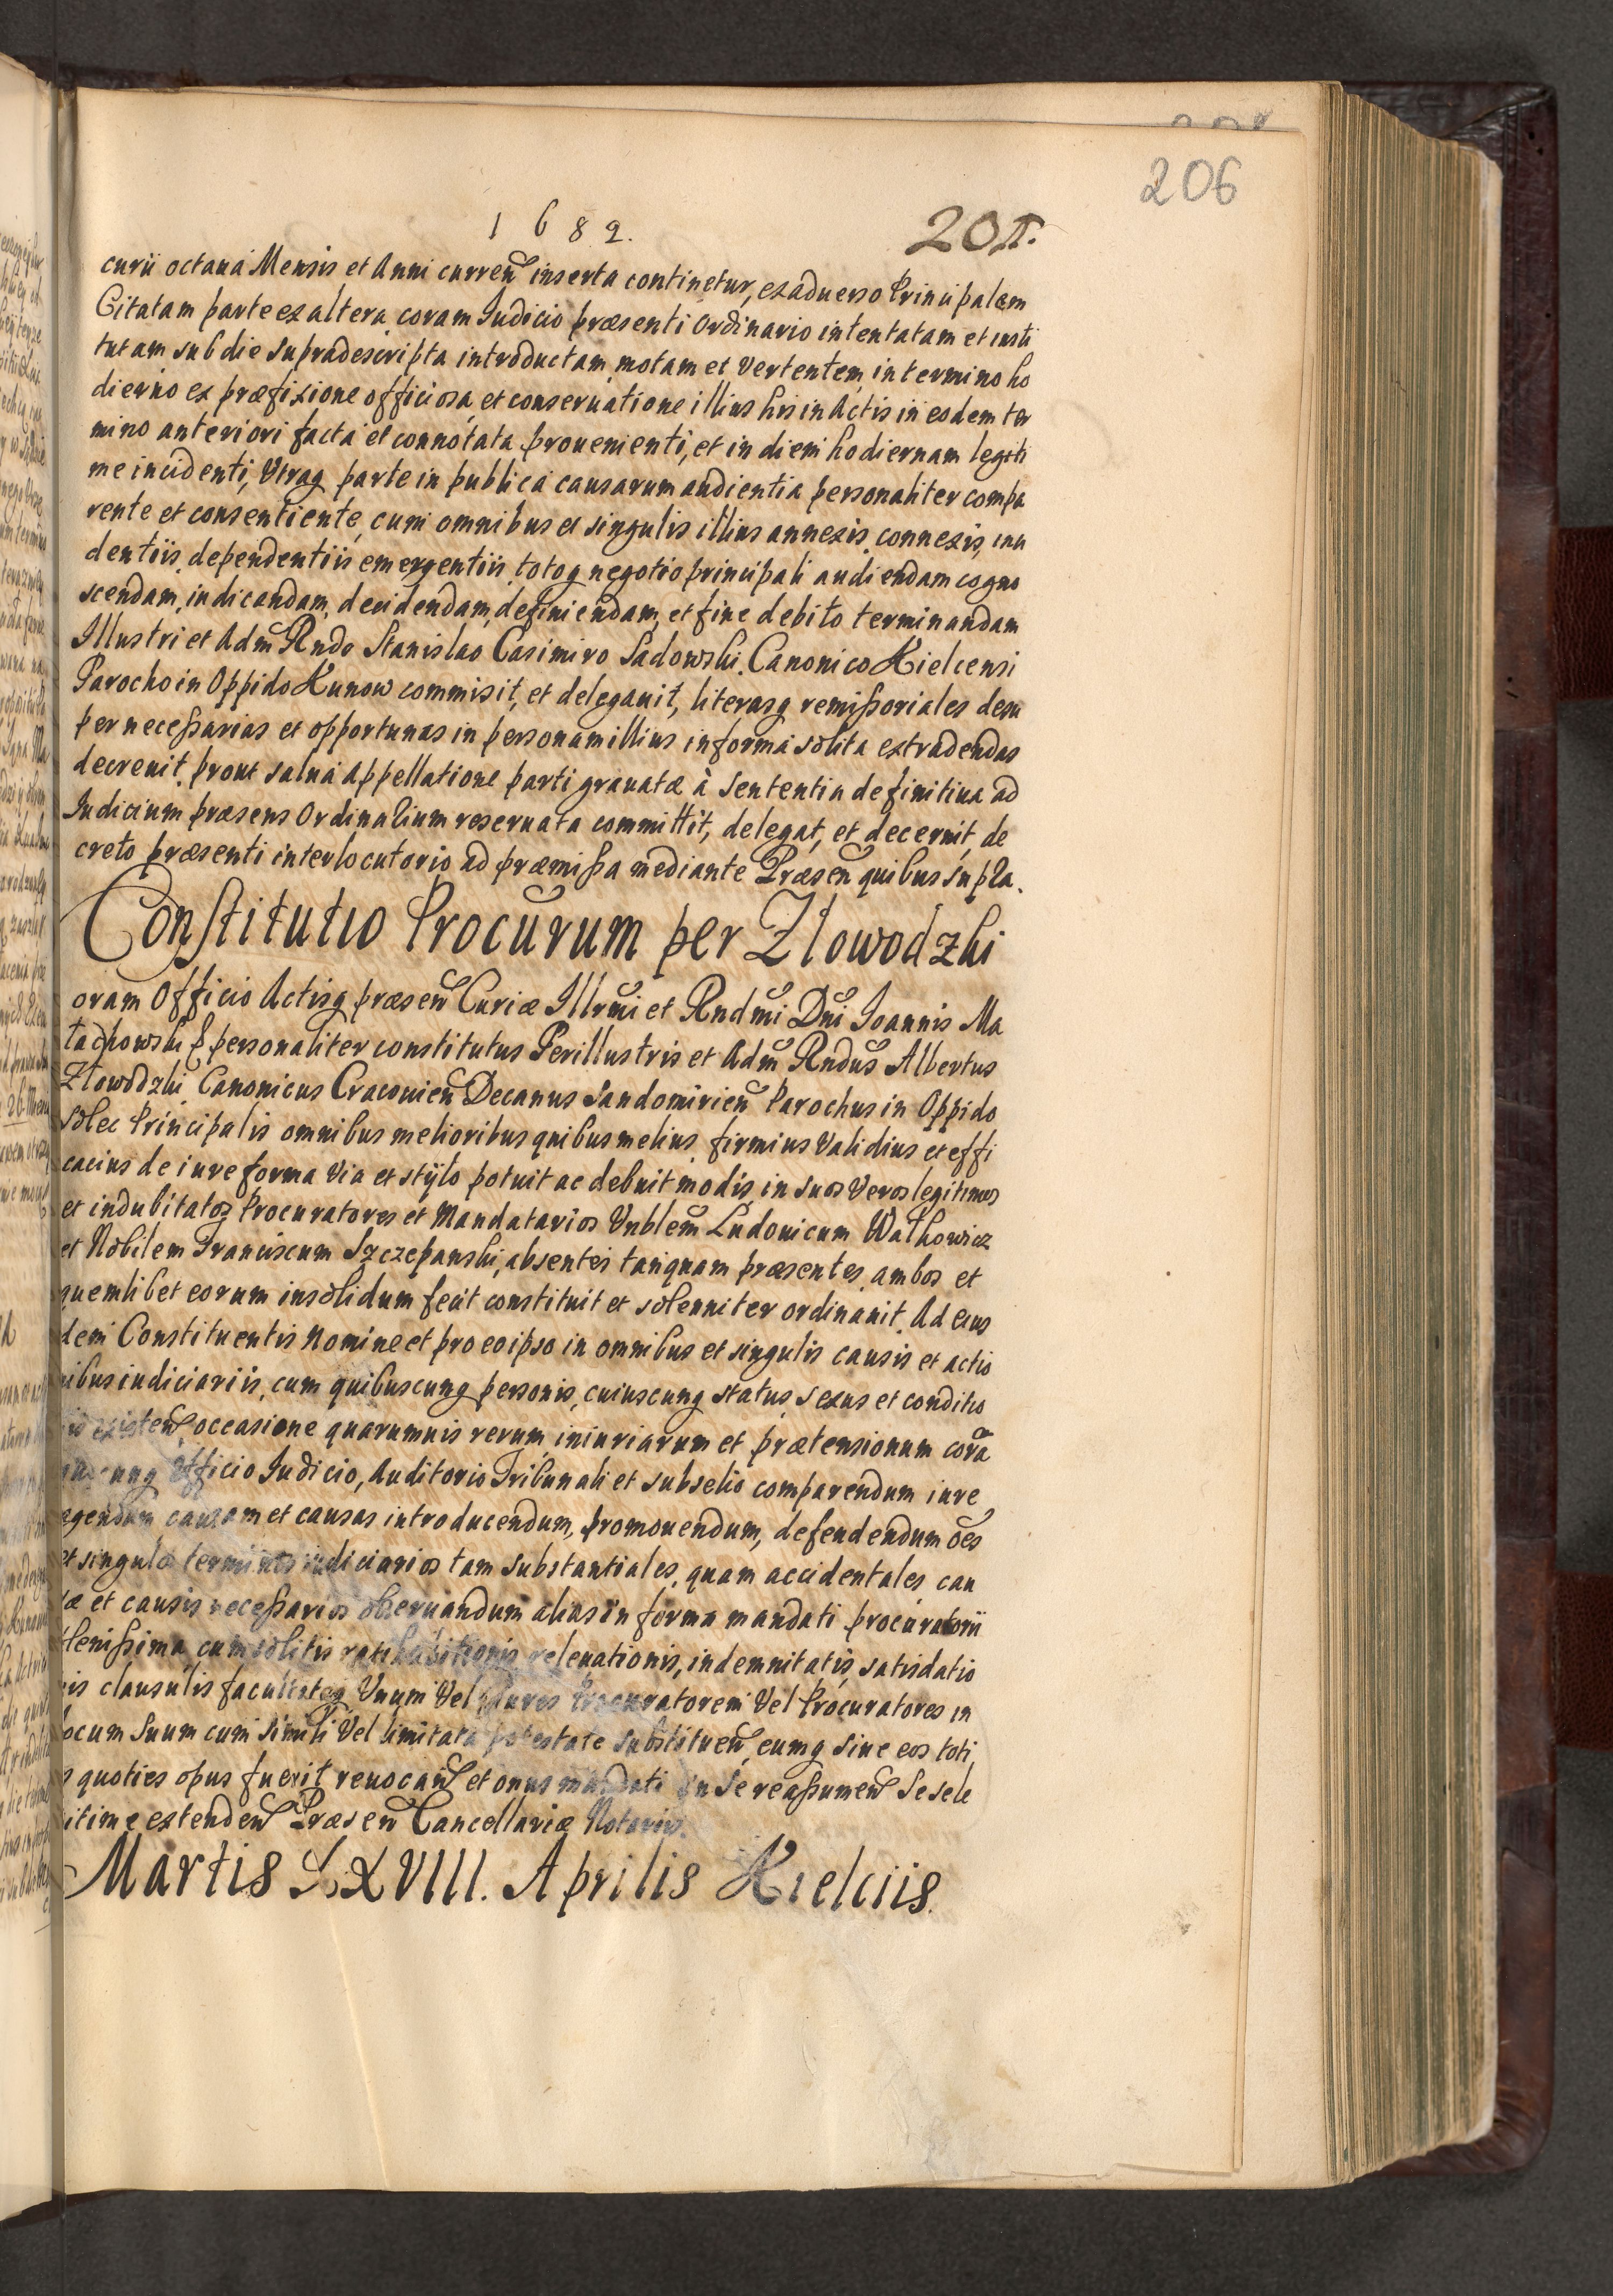 206
1 6 8 2.
201.
curii octaua Mensis et Anni curren inserta continetur, ex aduerso Principalem
Citatam parte ex altera coram Iudicio præsenti Ordinario intentatam et insti
tutam sub die supradescripta introductam, motam et vertentem, in termino ho
dierno ex præfixione officiosa et conseruatione illius his in Actis in eodem ter
mino anteriori facta et connotata prouenienti, et in diem hodiernam legiti
me incidenti, Vtraq parte in publica causarum audientia personaliter compa
rente et consentiente, cum omnibus et singulis illius annexis, connexis, inci
dentiis, dependentiis emergentiis, totoq negotio principali audiendam cogno
scendam, iudicandam, decidendam, definiendam, et fine debito terminandam
Illustri et Adm Rndo Stanislao Casimiro Sadowski. Canonico Kielcensi
Parocho in Oppido Kunow commisit, et delegauit, literasq remissoriales desu
per necessarias et opportunas in personam illius in forma solita extradendas
decreuit, prout salua Appellatione parti grauatæ à Sententia definitiua ad
Iudicium præsens Ordinarium reseruata committit, delegat, et decernit, de
creto præsenti interlocutorio ad præmissa mediante Præsen quibus in pla.
Constitutio Procurum per Zlowodzki
oram Officio Actisq præsen Curiæ Illrmi et Rndmi Dni Ioannis Ma
tachowski personaliter constitutus Perillustris et Adm Rndus Albertus
Zlowodzki Canonicus Cracouien Decanus Sandomirien Parochus in Oppido
Solec Principalis omnibus melioribus quibus melius firmius validius et effi
cacius de iure forma via et stylo potuit ac debuit modis, in suos veros legitimos
et indubitatos Procuratores et Mandatarios Vnblem Ludouicum Walkowicz
et Nobilem Franciscum Szczepanski, absentes tanquam præsentes, ambos et
quemlibet eorum insolidum fecit constituit et solenniter ordinauit. Ad eius
dem Constituentis Nomine et pro eo ipso in omnibus et singulis causis et actio
nibus iudiciariis, cum quibuscunq personis, cuiuscunq status, sexus et conditio
nis existen occasione quarumuis rerum iniuriarum et prætensionum cora
quocunq Officio Iudicio, Auditorio Tribunali et subselio comparendum iure
agendum causam et causas introducendum, promouendum, defendendum oes
et singulos terminos iudiciarios tam substantiales, quam accidentales cau
sæ et causis necessarios obseruandum alias in forma mandati procuratorii
plenissima cum solitis ratihabitionis relevationis, indemnitatis, satisdatio
nis clausulis facultateq Vnum Vel plures Procuratorem Vel Procuratores in
locum suum cum simili vel limitata potestate substituen, eumq siue eos toti
s quoties opus fuerit reuocan et onus mandati in se reassumen Se sele
itime extenden Præsen Cancellariæ Notario.
Martis XXVIII. Aprilis Kielciis.